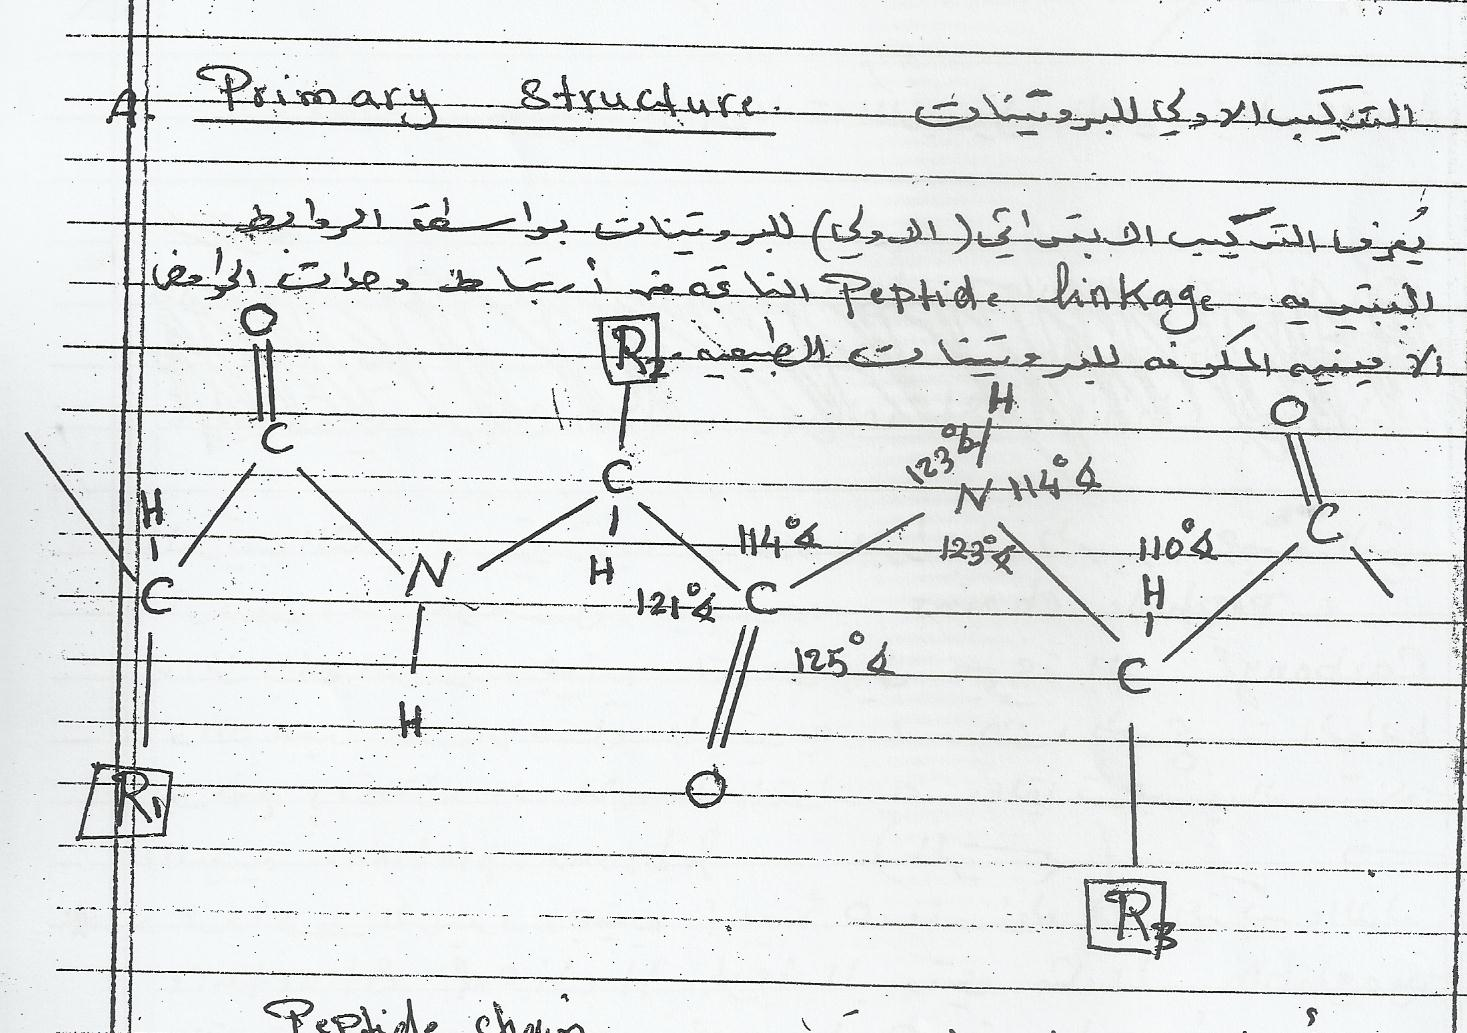 A. Primary structure. التركيب الاولي للبروتينات
يُعرف التركيب الابتدائي (الاولي) للبروتينات بواسطة الروابط
الببتيديه Peptide linkage الناتجه من أرتباط وحدات الحوامض
الامينيه المكونه للبروتينات الطبيعيه.
O R2 H O
C C 123° N 114° C
H H 114° 123° 110° H
C N 121° C 125° C
H
R1 O R3
Peptide chain